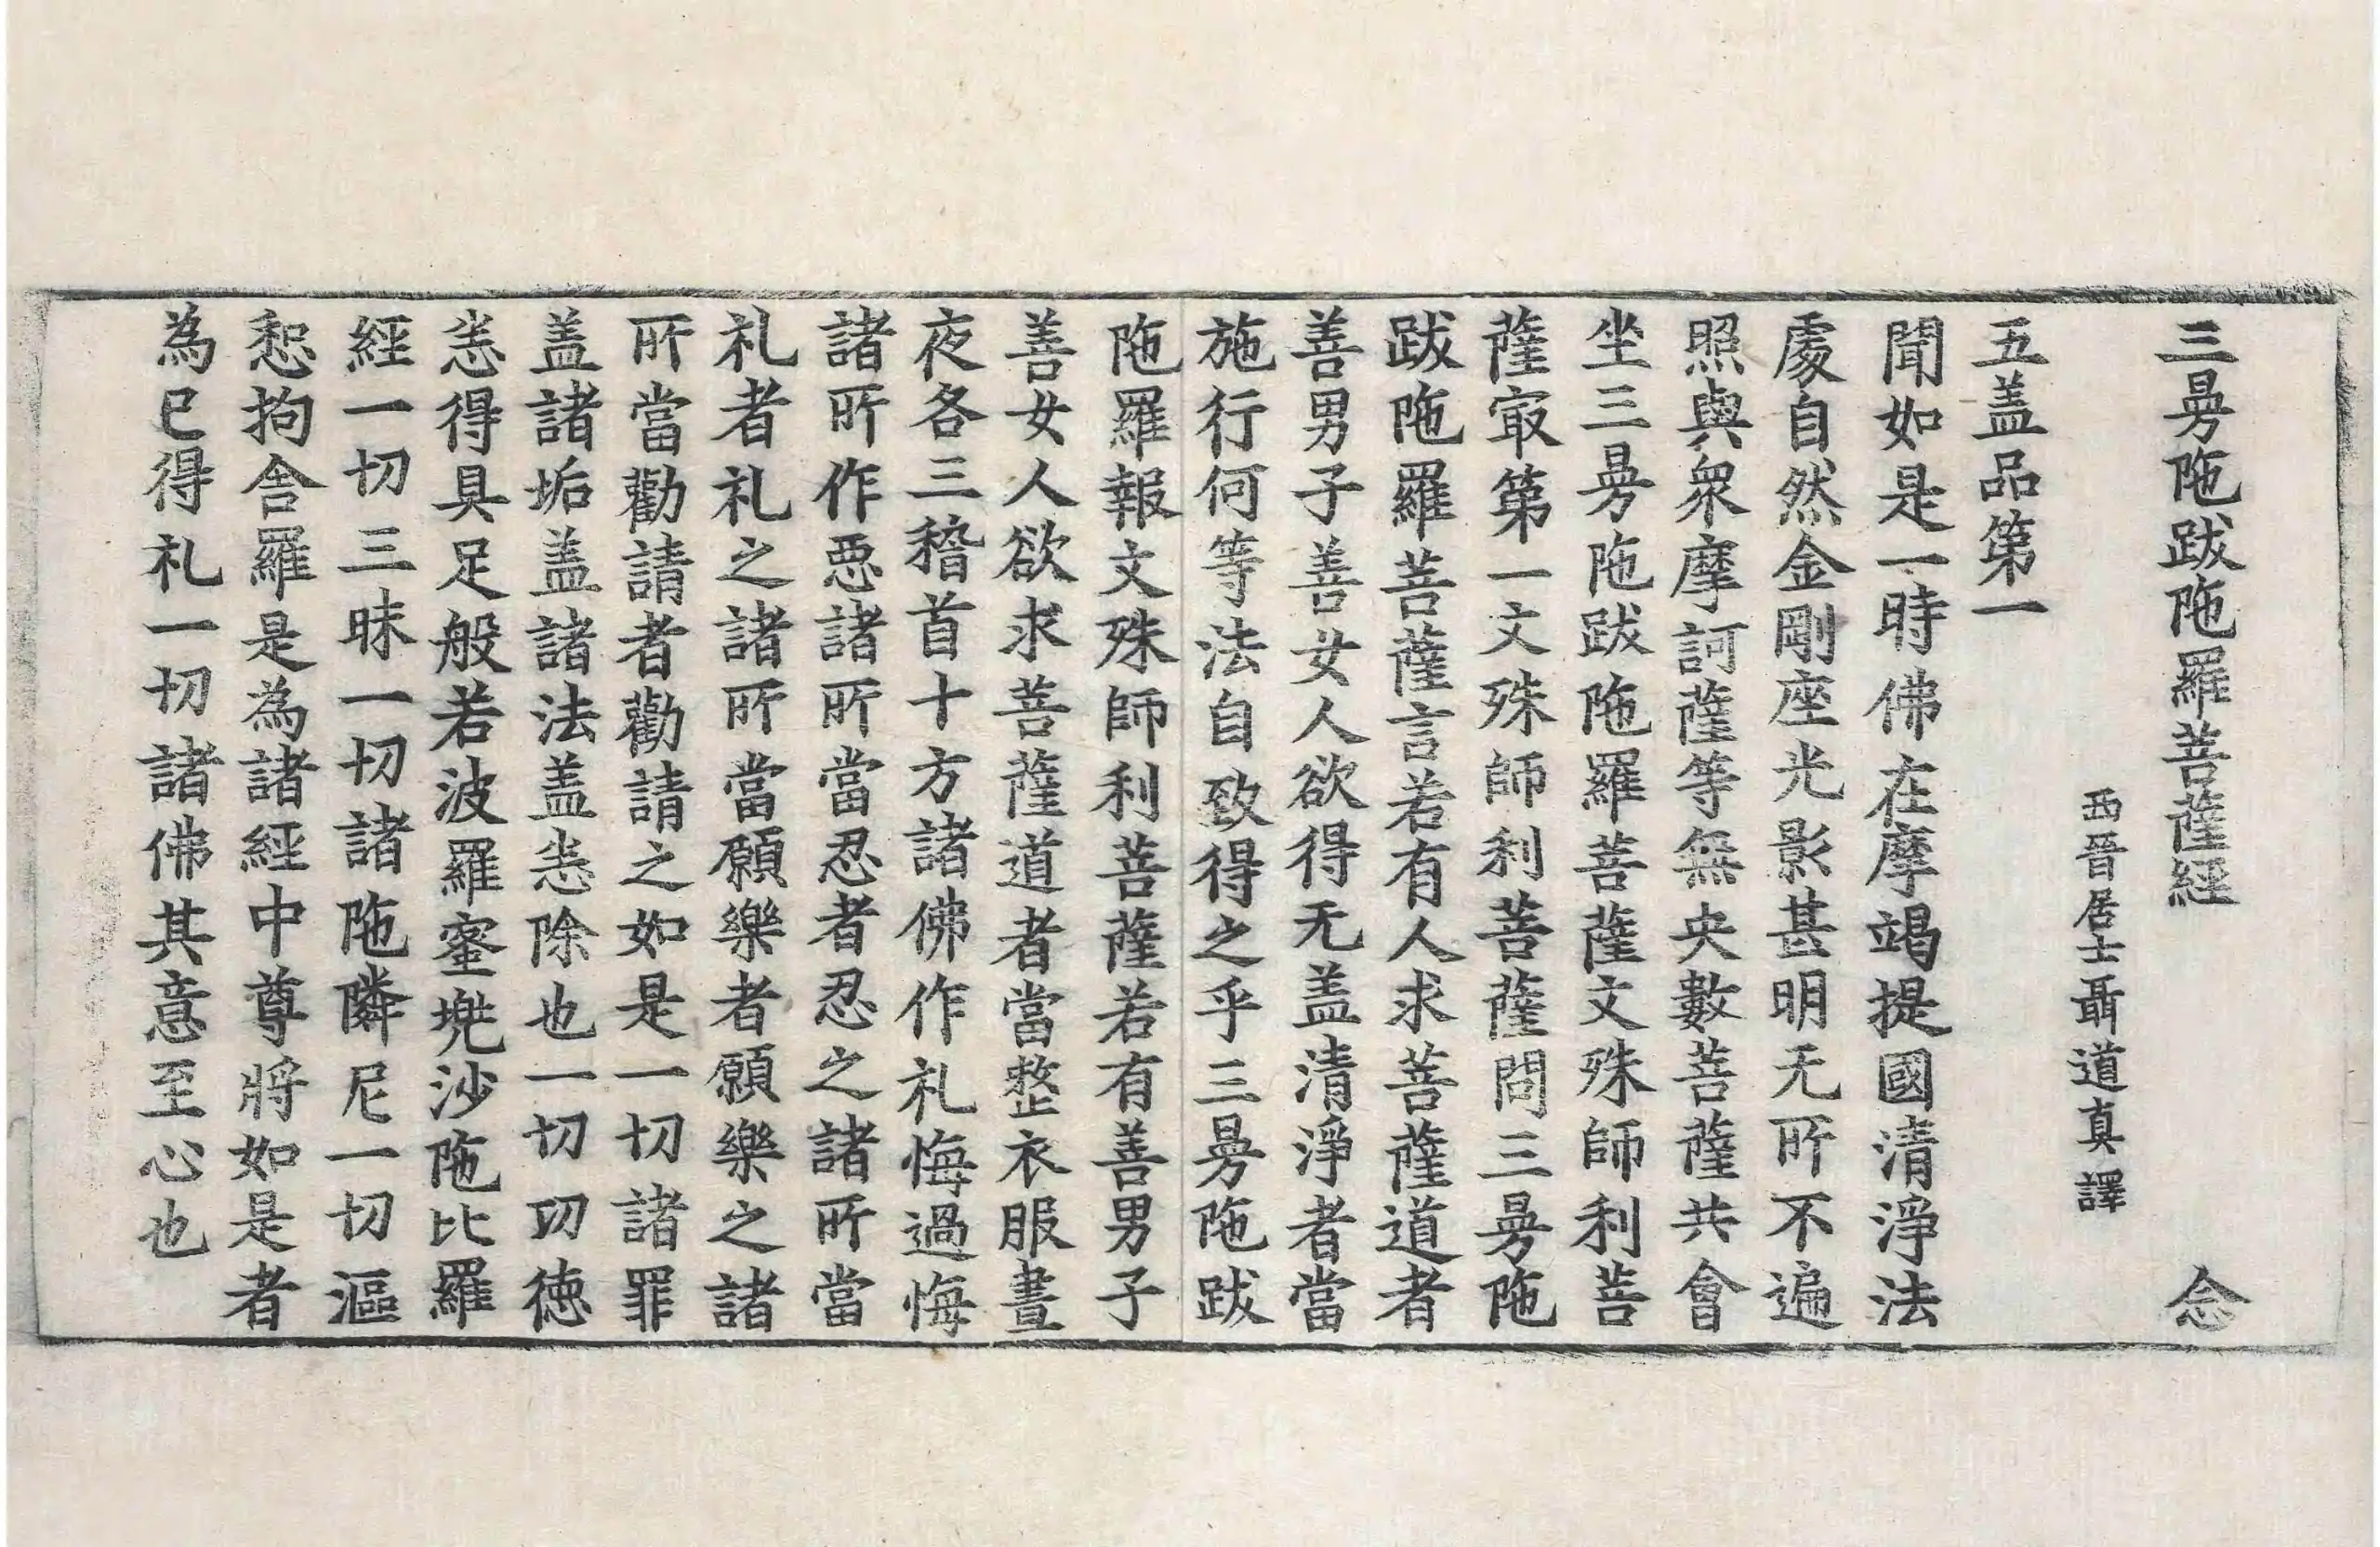 三曼陁跋陁羅菩薩經 念
西晉居士聶道真譯
五盖品第一
聞如是一時佛在摩竭提國清淨法
處自然金剛座光影甚明无所不遍
照與衆摩訶薩等無央數菩薩共會
坐三曼陁跋陁羅菩薩文殊師利菩
薩冣第一文殊師利菩薩問三曼陁
跋陁羅菩薩言若有人求菩薩道者
善男子善女人欲得无盖清淨者當
施行何等法自致得之乎三曼陁跋
陁羅報文殊師利菩薩若有善男子
善女人欲求菩薩道者當整衣服晝
夜各三稽首十方諸佛作礼悔過悔
諸所作惡諸所當忍者忍之諸所當
礼者礼之諸所當願樂者願樂之諸
所當勸請者勸請之如是一切諸罪
盖諸垢盖諸法盖恙除也一切功徳
恙得具足般若波羅蜜兠沙陁比羅
經一切三昧一切諸陁隣尼一切漚
惒拘舎羅是為諸經中尊將如是者
為已得礼一切諸佛其意至心也